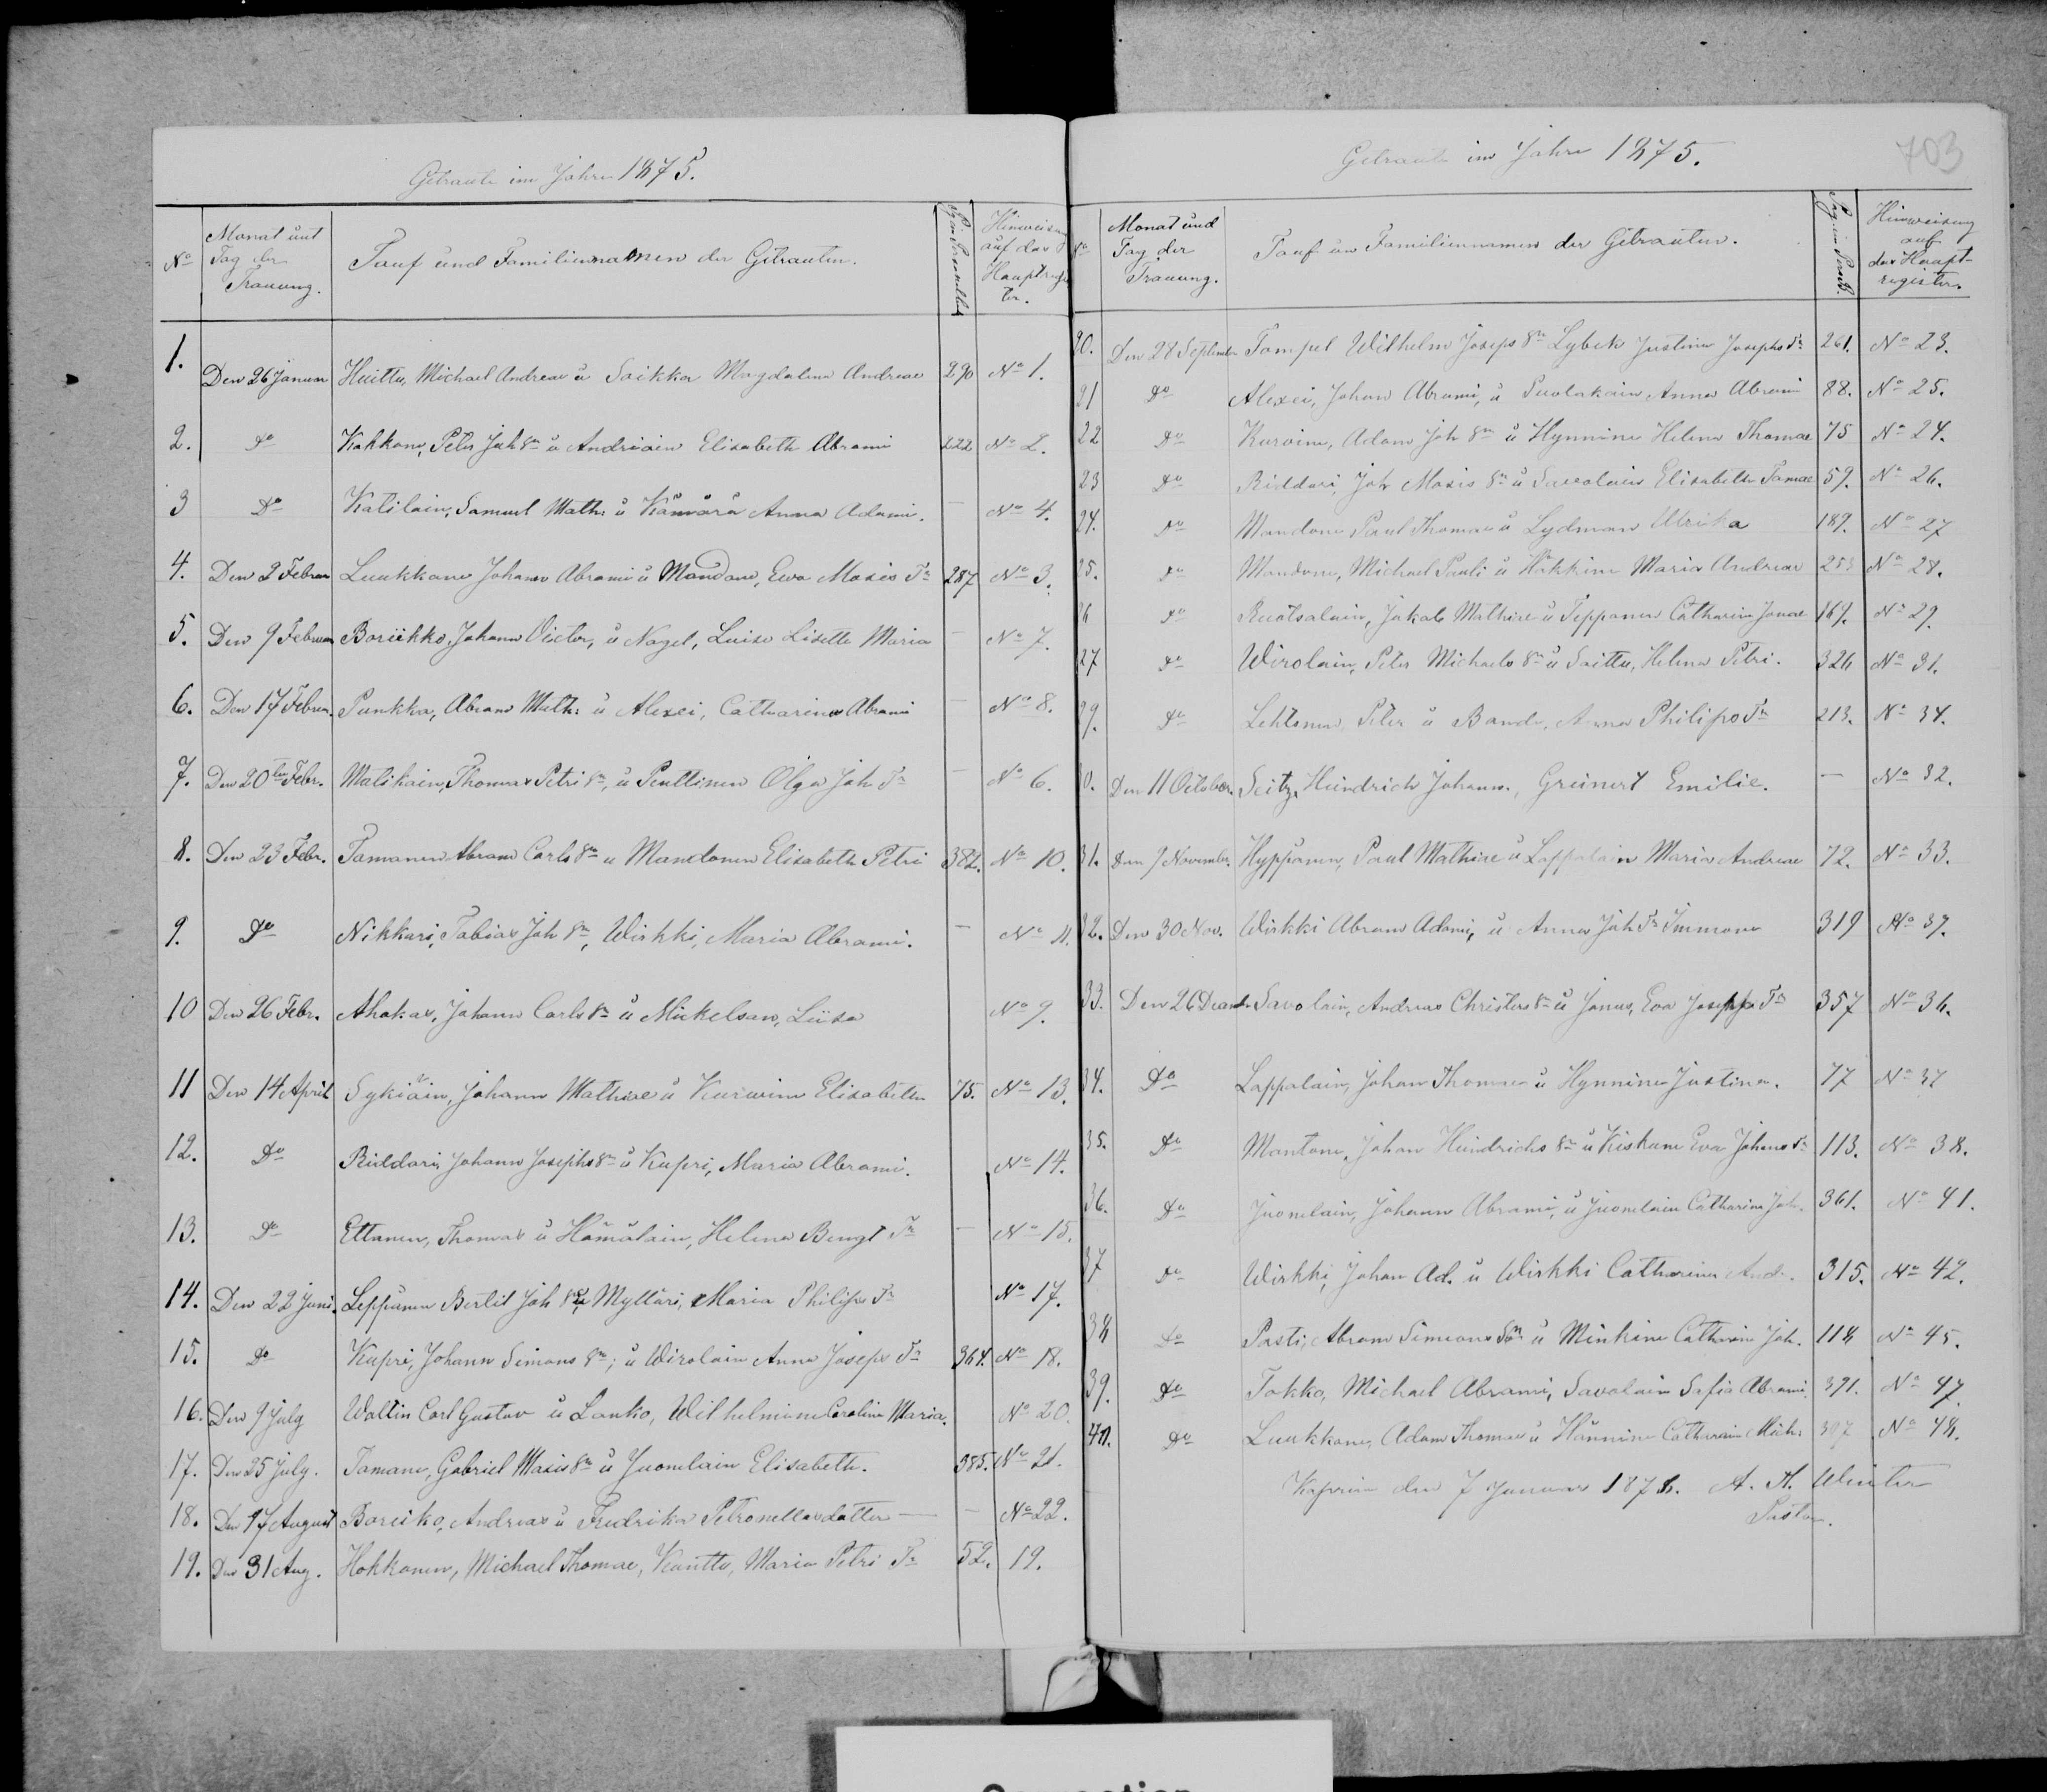 Getraute im Jahre 1875.
No Monat und Tag der Trauung. Tauf und Familiennamen der Getrauten. Hinweisung auf das Hauptregister.
1. Den 26 Januar Huittu, Michael Andreae u Saikka Magdalena Andreae 290 No 1.
2. Do Kokkone, Peter Joh Sn u Andriain Elisabeth Abrami 222 No 2.
3 Do Katilain, Samuel Math: u Känärä Anna Adami. — No 4.
4. Den 2 Februar Luukkane Johann Abrami u Mandone, Ewa Mosis Tr 287 No 3.
5. Den 9 Februar Boriikko, Johann Victor, u Nagel, Luise Lisette Maria — No 7.
6. Den 17 Februar. Punkka, Abram Math: u Alexei, Catharina Abrami — No 8.
7. Den 20ten Febr. Malikain, Thomas Petri Sn, u Penttinen Olga Joh Tr — No 6.
8. Den 23 Febr. Tamanen Abram Carls Sn u Mandonen Elisabeth Petri 382. No 10.
9. Do Nikkari, Tobias Joh Sn, Wirkki, Maria Abrami. — No 11.
10 Den 26 Febr. Ahokas, Johann Carls Sn u Mickelsan, Liisa No 9.
11 Den 14 April Sykiäin, Johann Mathiae u Kurwine Elisabeth 75. No 13.
12. Do Riddari, Johann Josephs Sn u Kupri, Maria Abrami. No 14.
13. Do Ettanen, Thomas u Hämäläin, Helena Bengt Tr — No 15.
14. Den 22 Juni. Leppänen Bertil Joh Sn u Mylläri, Maria Philips Tr No 17.
15. Do Kupri, Johann Simons Sn; u Wirolain Anna Joseps Tr 364. No 18.
16. Den 9 July Wallin Carl Gustav u Lanko, Wilhelmine Carolina Maria. No 20.
17. Den 25 July. Tamane, Gabriel Mosis Sn u Juonelain Elisabeth. 385. No 21.
18. Den 17 August Boreiko, Andreas u Fredrika Petronellasdotter — — No 22.
19. Den 31 Aug. Hokkanen, Michael Thomae, Kanttu, Maria Petri Tr 52. 19.
Getraute im Jahre 1875.
703
No Monat und Tag der Trauung. Tauf und Familiennamen der Getrauten. Hinweisung auf das Hauptregister.
20. Den 28 September Tompel Wilhelm Joseps Sn Lybek Justina Josephs Tr 261. No 23.
21 Do Alexei, Johan Abrami, u Puolakain Anna Abrami 88. No 25.
22 Do Kurvine, Adam Joh Sn u Hynnine Helena Thomae 75 No 24.
23 Do Riddari, Joh Mosis Sn u Savolain Elisabeth Tomae 59. No 26.
24. Do Mandone Paul Thomae u Lydman Ulrika 189. No 27
25. Do Mandone, Michael Pauli u Häkkine Maria Andreae 253 No 28.
26 Do Ruotsalain, Jakob Mathiae u Teppanen Catharin Jonae 169. No 29.
27 Do Wirolain, Peter Michaels Sn u Saittu, Helena Petri. 326 No 31.
29. Do Lehtonen, Peter u Bande, Anna Philips Tr 213. No 34.
30. Den 11 October. Seitz Heindrich Johann., Greinert Emilie. — No 32.
31. Den 9 November. Hyppänen, Paul Mathiae u Lappalain Maria Andreae 72. No 33.
32. Den 30 Nov. Wirkki Abram Adami, u Anna Joh Tr Immone 319 No 37.
33. Den 26 Decemb. Savolain, Andreas Christers Sn u Jonus, Eva Josephs Tr 357 No 36.
34. Do Lappalain, Johan Thomae u Hynnine Justina. 77 No 37
35. Do Mantone, Johan Heindrichs Sn u Kiskune Eva Johans Tr 113. No 38.
36. Do Juonelain, Johann Abrami, u Juonelain Catharina Joh. 361. No 41.
37 Do Wirkki, Johan Ad. u Wirkki Catharina And. 315. No 42.
38 Do Pasti, Abram Simeons Sn u Minkine Catharin Joh. 118 No 45.
39. Do Tokko, Michael Abrami, Savolain Sofia Abrami. 391. No 47.
40. Do Luukkane, Adam Thomae u Hännine Catharin Mich: 397 No 48.
Kaprio den 7 Januar 1876. A. A. Winter
Pastor.